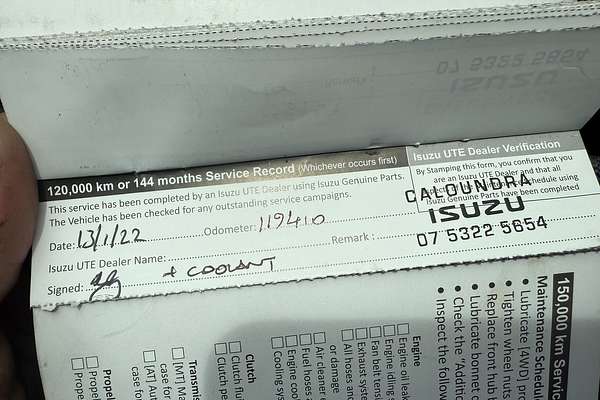 07 5322 5654
ISUZU
120,000 km or 144 months Service Record (Whichever occurs first)
This service has been completed by an Isuzu UTE Dealer using Isuzu Genuine Parts.
The Vehicle has been checked for any outstanding service campaigns.
Date: 13/1/22 Odometer: 119410
Isuzu UTE Dealer Name: Remark :
Signed: + COOLANT
Isuzu UTE Dealer Verification
By Stamping this form, you confirm that you
are an Isuzu UTE Dealer and that all
schedule using
Isuzu Genuine Parts have been completed
CALOUNDRA
ISUZU
07 5322 5654
150,000 km Servic
Maintenance Schedul
• Lubricate [4WD] pro
• Tighten wheel nuts
• Replace front hub b
• Lubricate bonnet c
• Check the "Additi
• Inspect the follow
Engine
Engine oil leak
Engine idling
Fan belt tens
Exhaust syste
All hoses and
or damage
Air cleaner
Fuel hoses
Engine coo
Cooling sys
Clutch
Clutch flui
Clutch pe
Transmis
[MT] Ma
case fo
[AT] Aut
case for
Propel
Propel
Prope